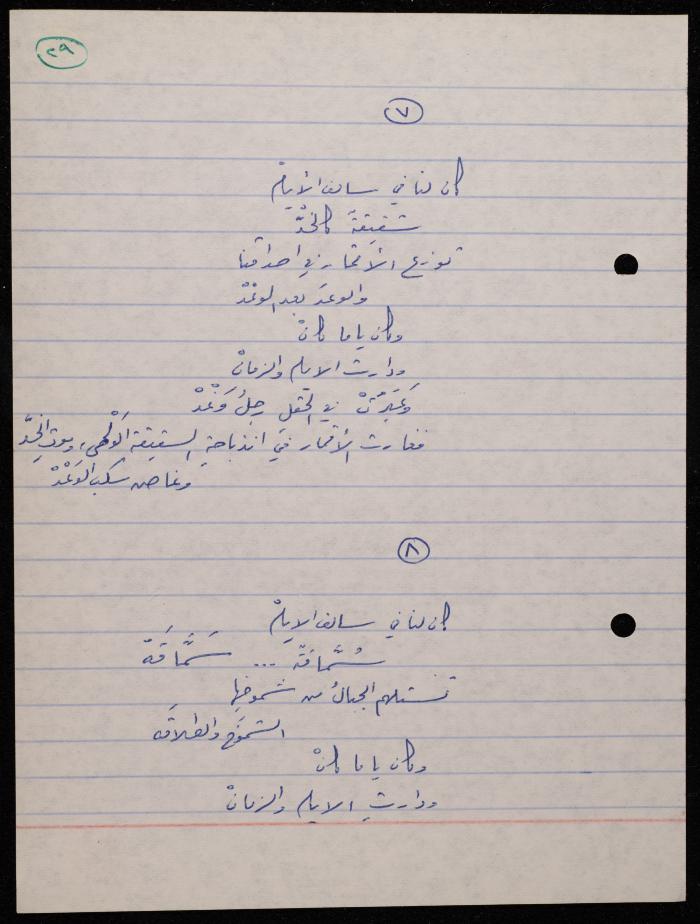 ٢٩
٧
كان لنا في سالف الأيامْ
شقيقةُ كالخدّْ
توزع الأقمار في احداقنا
والوعدَ بعد الوعْدْ
وكان ياما كانْ
ودارت الايام والزمانْ
وَعَبَرَتْ في الحقلِ رجلُ وَغْدْ
فغارت الأقمار في انذباحةِ الشقيقة الأولى، وموت الخدّْ
وغاص سكب الوَعْدْ
٨
كان لنا في سالف الايامْ
سُمَّاقَة ... سَمَّاقَة
تستلهم الجبالُ من شموخها
الشموخَ والطلاقه
وكان ياما كانْ
ودارتِ الايام والزمانْ